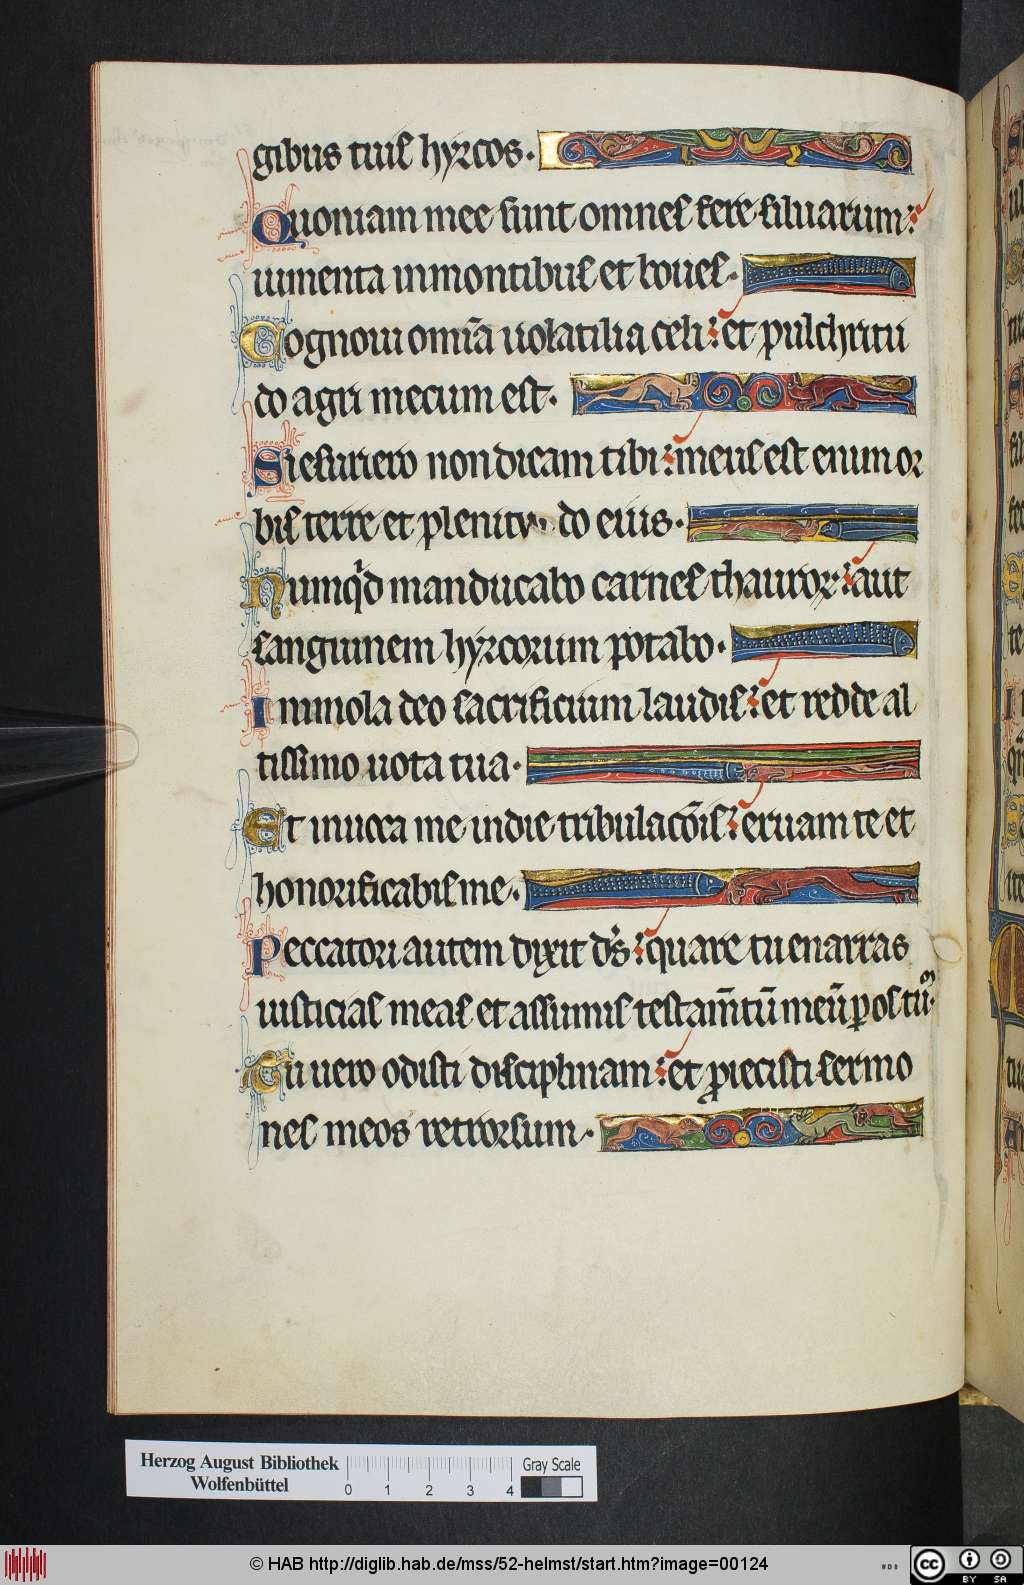 gibus tuis hyrcos.
Quoniam mee sunt omnes fere siluarum:
iumenta in montibus et boues.
Cognoui omīa uolatilia celi: et pulchritu
do agri mecum est.
Si esuriero non dicam tibi: meus est enim or
bis terre et plenitu do eius.
Numq̇d manducabo carnes thauroꝝ: aut
sanguinem hyrcorum potabo.
Immola deo sacrificium laudis: et redde al
tissimo uota tua.
Et inuoca me in die tribulacōis: eruam te et
honorificabis me.
Peccatori autem dixit dṡ: quare tu enarras
iusticias meas et assumis testam̄tū meū ꝑ os tuū.
Tu uero odisti disciplinam: et ꝓiecisti sermo
nes meos retrorsum.
Herzog August Bibliothek
Wolfenbüttel
0 1 2 3 4
Gray Scale
© HAB http://diglib.hab.de/mss/52-helmst/start.htm?image=00124
WDB
cc BY SA